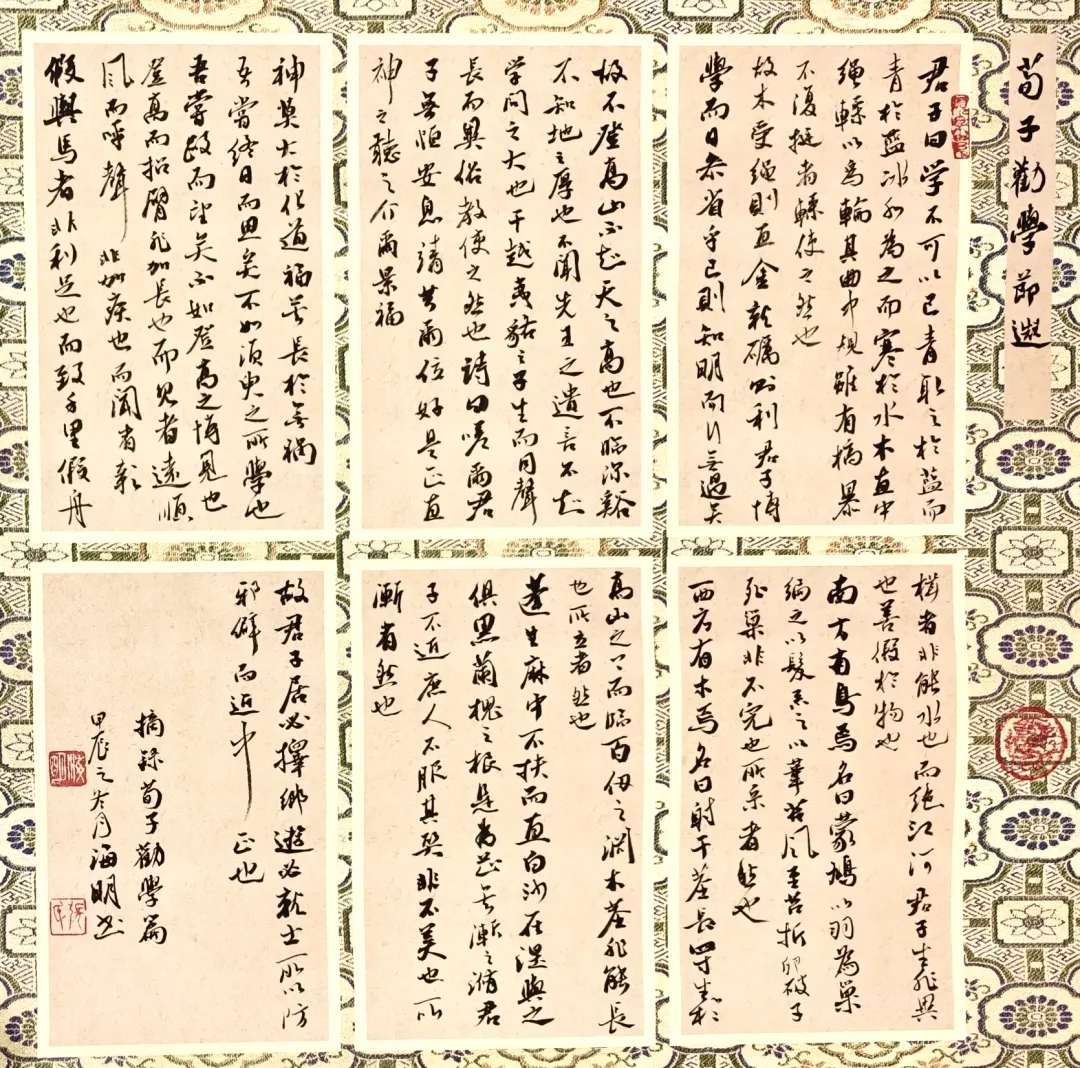 荀子勸學節選
君子曰学不可以已青取之於藍而
青於藍冰水為之而寒於水木直中
繩輮以為輪其曲中規雖有槁暴
不復挺者輮使之然也
故木受繩則直金就礪則利君子博
學而日參省乎已則知明而行無過矣
故不登高山不知天之高也不臨深谿
不知地之厚也不聞先王之遺言不知
学問之大也干越夷貉之子生而同聲
長而異俗教使之然也詩曰嗟爾君
子無恒安息靖共爾位好是正直
神之聽之介爾景福
神莫大於化道福莫長於無禍
吾嘗終日而思矣不如須臾之所學也
吾嘗跂而望矣不如登高之博見也
登高而招臂非加長也而見者遠順
風而呼聲非加疾也而聞者彰
假輿馬者非利足也而致千里假舟
楫者非能水也而絕江河君子生非異
也善假於物也
南方有鳥焉名曰蒙鳩以羽為巢
編之以髮系之以葦苕風至苕折卵破子
死巢非不完也所系者然也
西方有木焉名曰射干莖長四寸生於
高山之上而臨百仞之淵木莖非能長
也所立者然也
蓬生麻中不扶而直白沙在涅與之
俱黑蘭槐之根是為芷其漸之滫君
子不近庶人不服其質非不美也所
漸者然也
故君子居必擇鄉遊必就士所以防
邪僻而近中正也
摘録荀子勸學篇
甲辰之冬月海明书